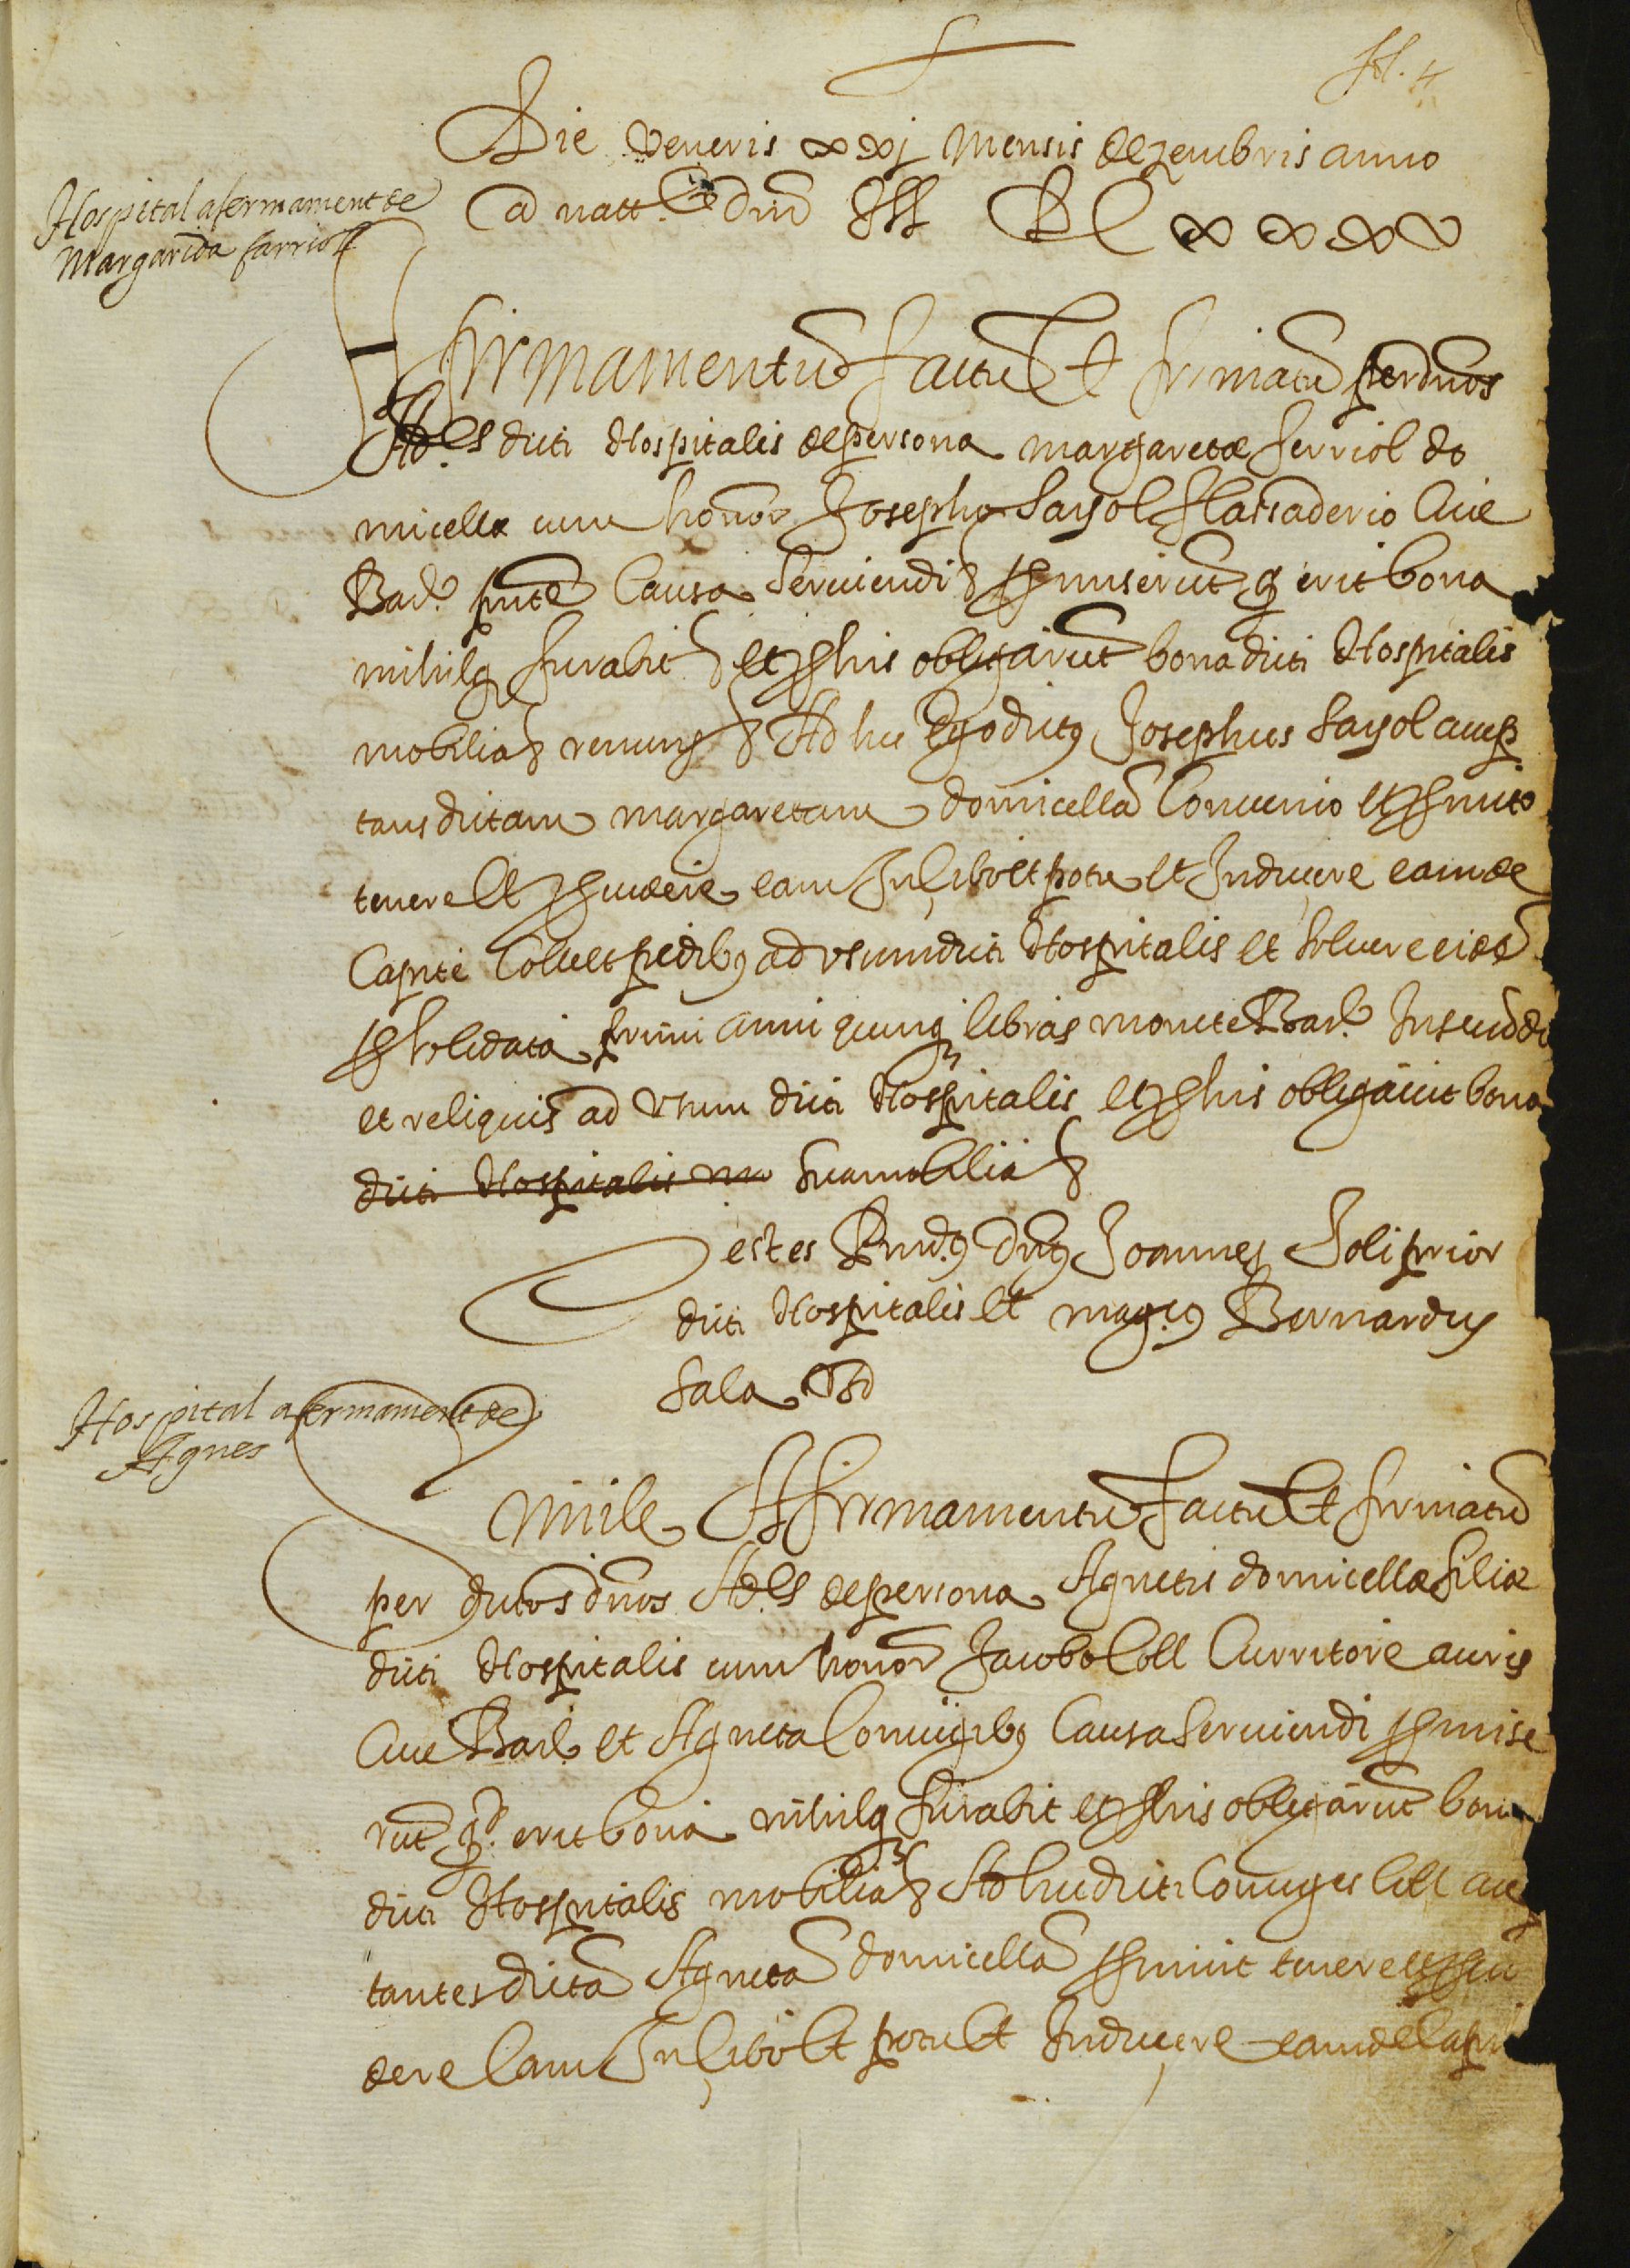 Die veneris xxj mensis dezembris anno
a natt.e dnj M DC xxxv
Hospital afermament de
Margarida farriol
Afirmamentu factu et firmatu per dnos
Ad.es dicti Hospitalis de persona margaretæ ferriol do
micellæ cum honor Josepho Sayol flassaderio Cive
Bar.e pnte Causa serviendi & promiserut q erit bona
nihilq furabit & et pro his obligarut bona dicti Hospitalis
mobilia & renung & Ad hec Ego dictus Josephus Sayol accep
tans dictam margaretam domicella Convenio et promito
tenere et providere eam In cibo et potu et Induere eam de
Capite Colu et pedibus ad usum dicti Hospitalis et solvere eide
pro soldata primi anni quinq libras monete Bar.e In secudo
et reliquis ad usum dicti Hospitalis et pro his obligavit bona
dicti Hospitalis mo sua mobilia &
Testes Rnd.us Dns Joannes Soli prior
dicti Hospitalis et mag.cus Bernardus
Sala
Hospital afermament de
Agnes
Simile Affirmamentu factu et firmatu
per dictos dnos Ad.es de persona Agnetis domicellæ filiæ
dicti Hospitalis cum honor Jacobo Coll Curritore auris
Cive Bar.e et Agneta Coniugibus Causa serviendi promise
rut q.d erit bona nihilq furabit et pro his obligarut bona
dicti Hospitalis mobilia & Ad hec dicti Coniuges Coll accep
tantes dicta Agneta domicella promitt tenere et provi
dere eam In cibo et potu et Induere eam de Capi